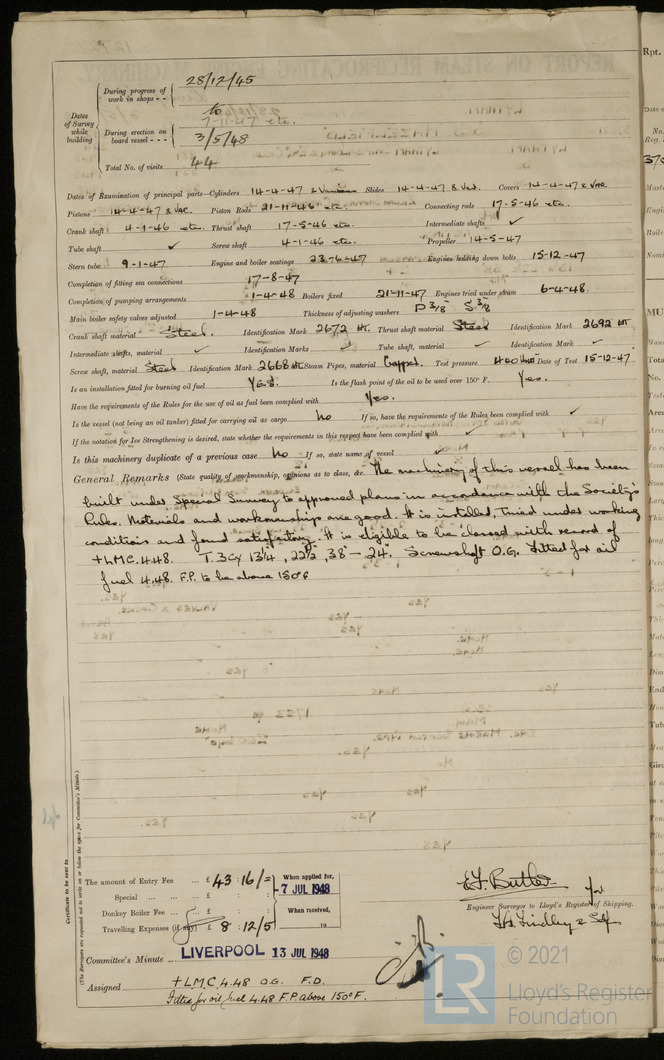 28/12/45
During progress of work in shops - -
to
7-11-47 etc.
Dates of Survey while building
During erection on board vessel - - -
3/5/48
Total No. of visits 44
Dates of Examination of principal parts—Cylinders 14-4-47 & Various Slides 14-4-47 & Var. Covers 14-4-47 & Var
Pistons 14-4-47 & Var. Piston Rods 21-11-46 etc. Connecting rods 17-5-46 etc.
Crank shaft 4-1-46 etc. Thrust shaft 17-5-46 etc. Intermediate shafts ✓
Tube shaft ✓ Screw shaft 4-1-46 etc. Propeller 14-5-47
Stern tube 9-1-47 Engine and boiler seatings 23-6-47 Engines holding down bolts 15-12-47
Completion of fitting sea connections 17-8-47
Completion of pumping arrangements 1-4-48 Boilers fixed 21-11-47 Engines tried under steam 6-4-48.
Main boiler safety valves adjusted 1-4-48 Thickness of adjusting washers P 3/8 S 3/8
Crank shaft material Steel. Identification Mark 2672 HT. Thrust shaft material Steel Identification Mark 2692 HT
Intermediate shafts, material ✓ Identification Marks ✓ Tube shaft, material ✓ Identification Mark ✓
Screw shaft, material Steel Identification Mark 2668 HT. Steam Pipes, material Copper. Test pressure 400 Date of Test 15-12-47
Is an installation fitted for burning oil fuel Yes. Is the flash point of the oil to be used over 150° F. Yes.
Have the requirements of the Rules for the use of oil as fuel been complied with Yes.
Is the vessel (not being an oil tanker) fitted for carrying oil as cargo No If so, have the requirements of the Rules been complied with ✓
If the notation for Ice Strengthening is desired, state whether the requirements in this respect have been complied with ✓
Is this machinery duplicate of a previous case No If so, state name of vessel ✓
General Remarks (State quality of workmanship, opinions as to class, &c. The machinery of this vessel has been
built under Special Survey to approved plans in accordance with the Society's
Rules. Materials and workmanship are good. It is installed, tried under working
conditions and found satisfactory. It is eligible to be classed with record of
+LMC.4.48. T.3Cy 13¼, 22½, 38 — 24. Screwshaft O.G. Fitted for oil
fuel 4.48. F.P. to be above 150°F
Certificate to be sent to
(The Surveyors are requested not to write on or below the space for Committee's Minute.)
The amount of Entry Fee ... £ 43 : 16/=
When applied for,
7 JUL 1948
Special ... ... £
Donkey Boiler Fee ... £
When received,
Travelling Expenses (if any) £ 8 : 12/5
19
E.F. Butler for
Engineer Surveyor to Lloyd's Register of Shipping.
H.S. Findley & Self
LIVERPOOL 13 JUL 1948
Committee's Minute
Assigned +LMC.4.48 O.G. F.D.
Fitted for oil fuel 4.48 F.P. above 150°F.
LR
© 2021
Lloyd's Register
Foundation
Rpt.